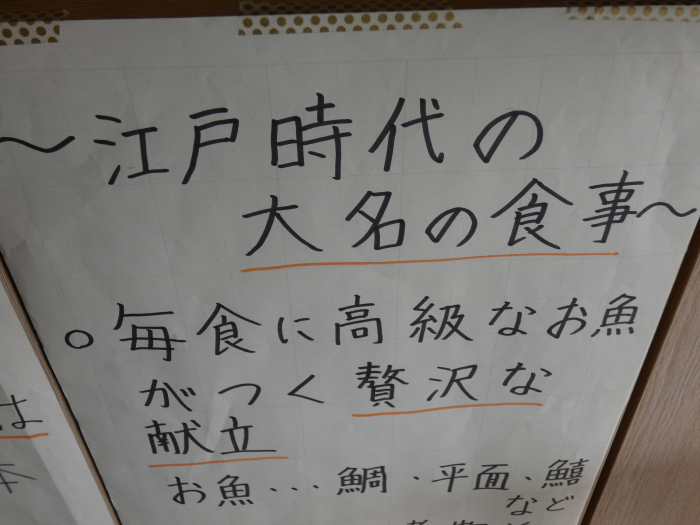 ～江戸時代の
大名の食事～
○毎食に高級なお魚
がつく贅沢な
献立
お魚・・・鯛・平面・鱚
など
は